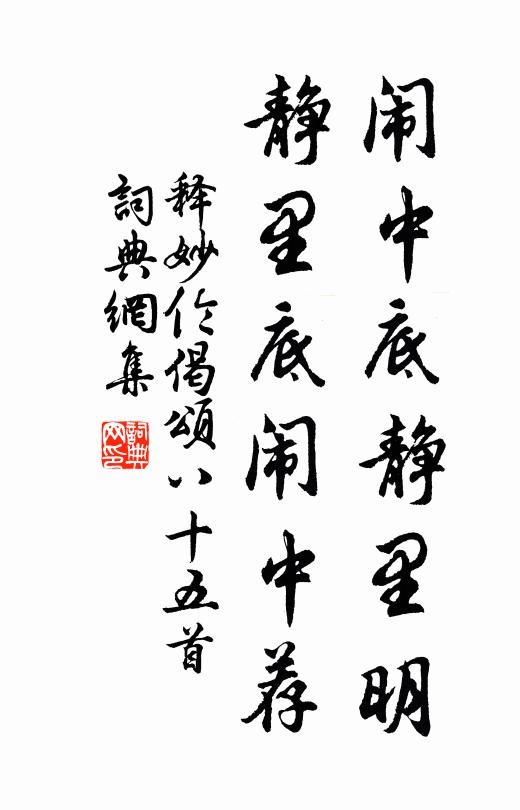 闹中底静里明
静里底闹中荐
释妙伦偈頌八十五首
詞典網集
詞典
网印